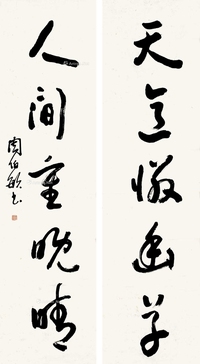 天意憐幽草
人間重晚晴
周伯敏書